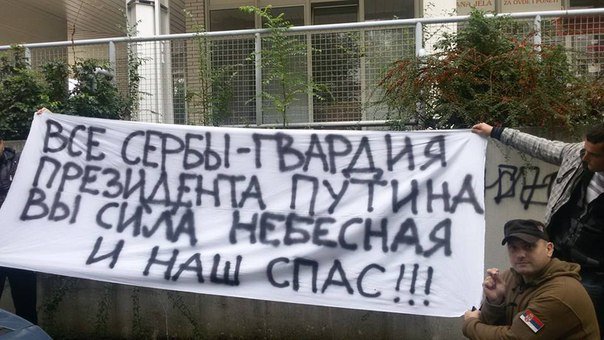 ВСЕ СЕРБЫ-ГВАРДИЯ
ПРЕЗИДЕНТА ПУТИНА
ВЫ СИЛА НЕБЕСНАЯ
И НАШ СПАС!!!